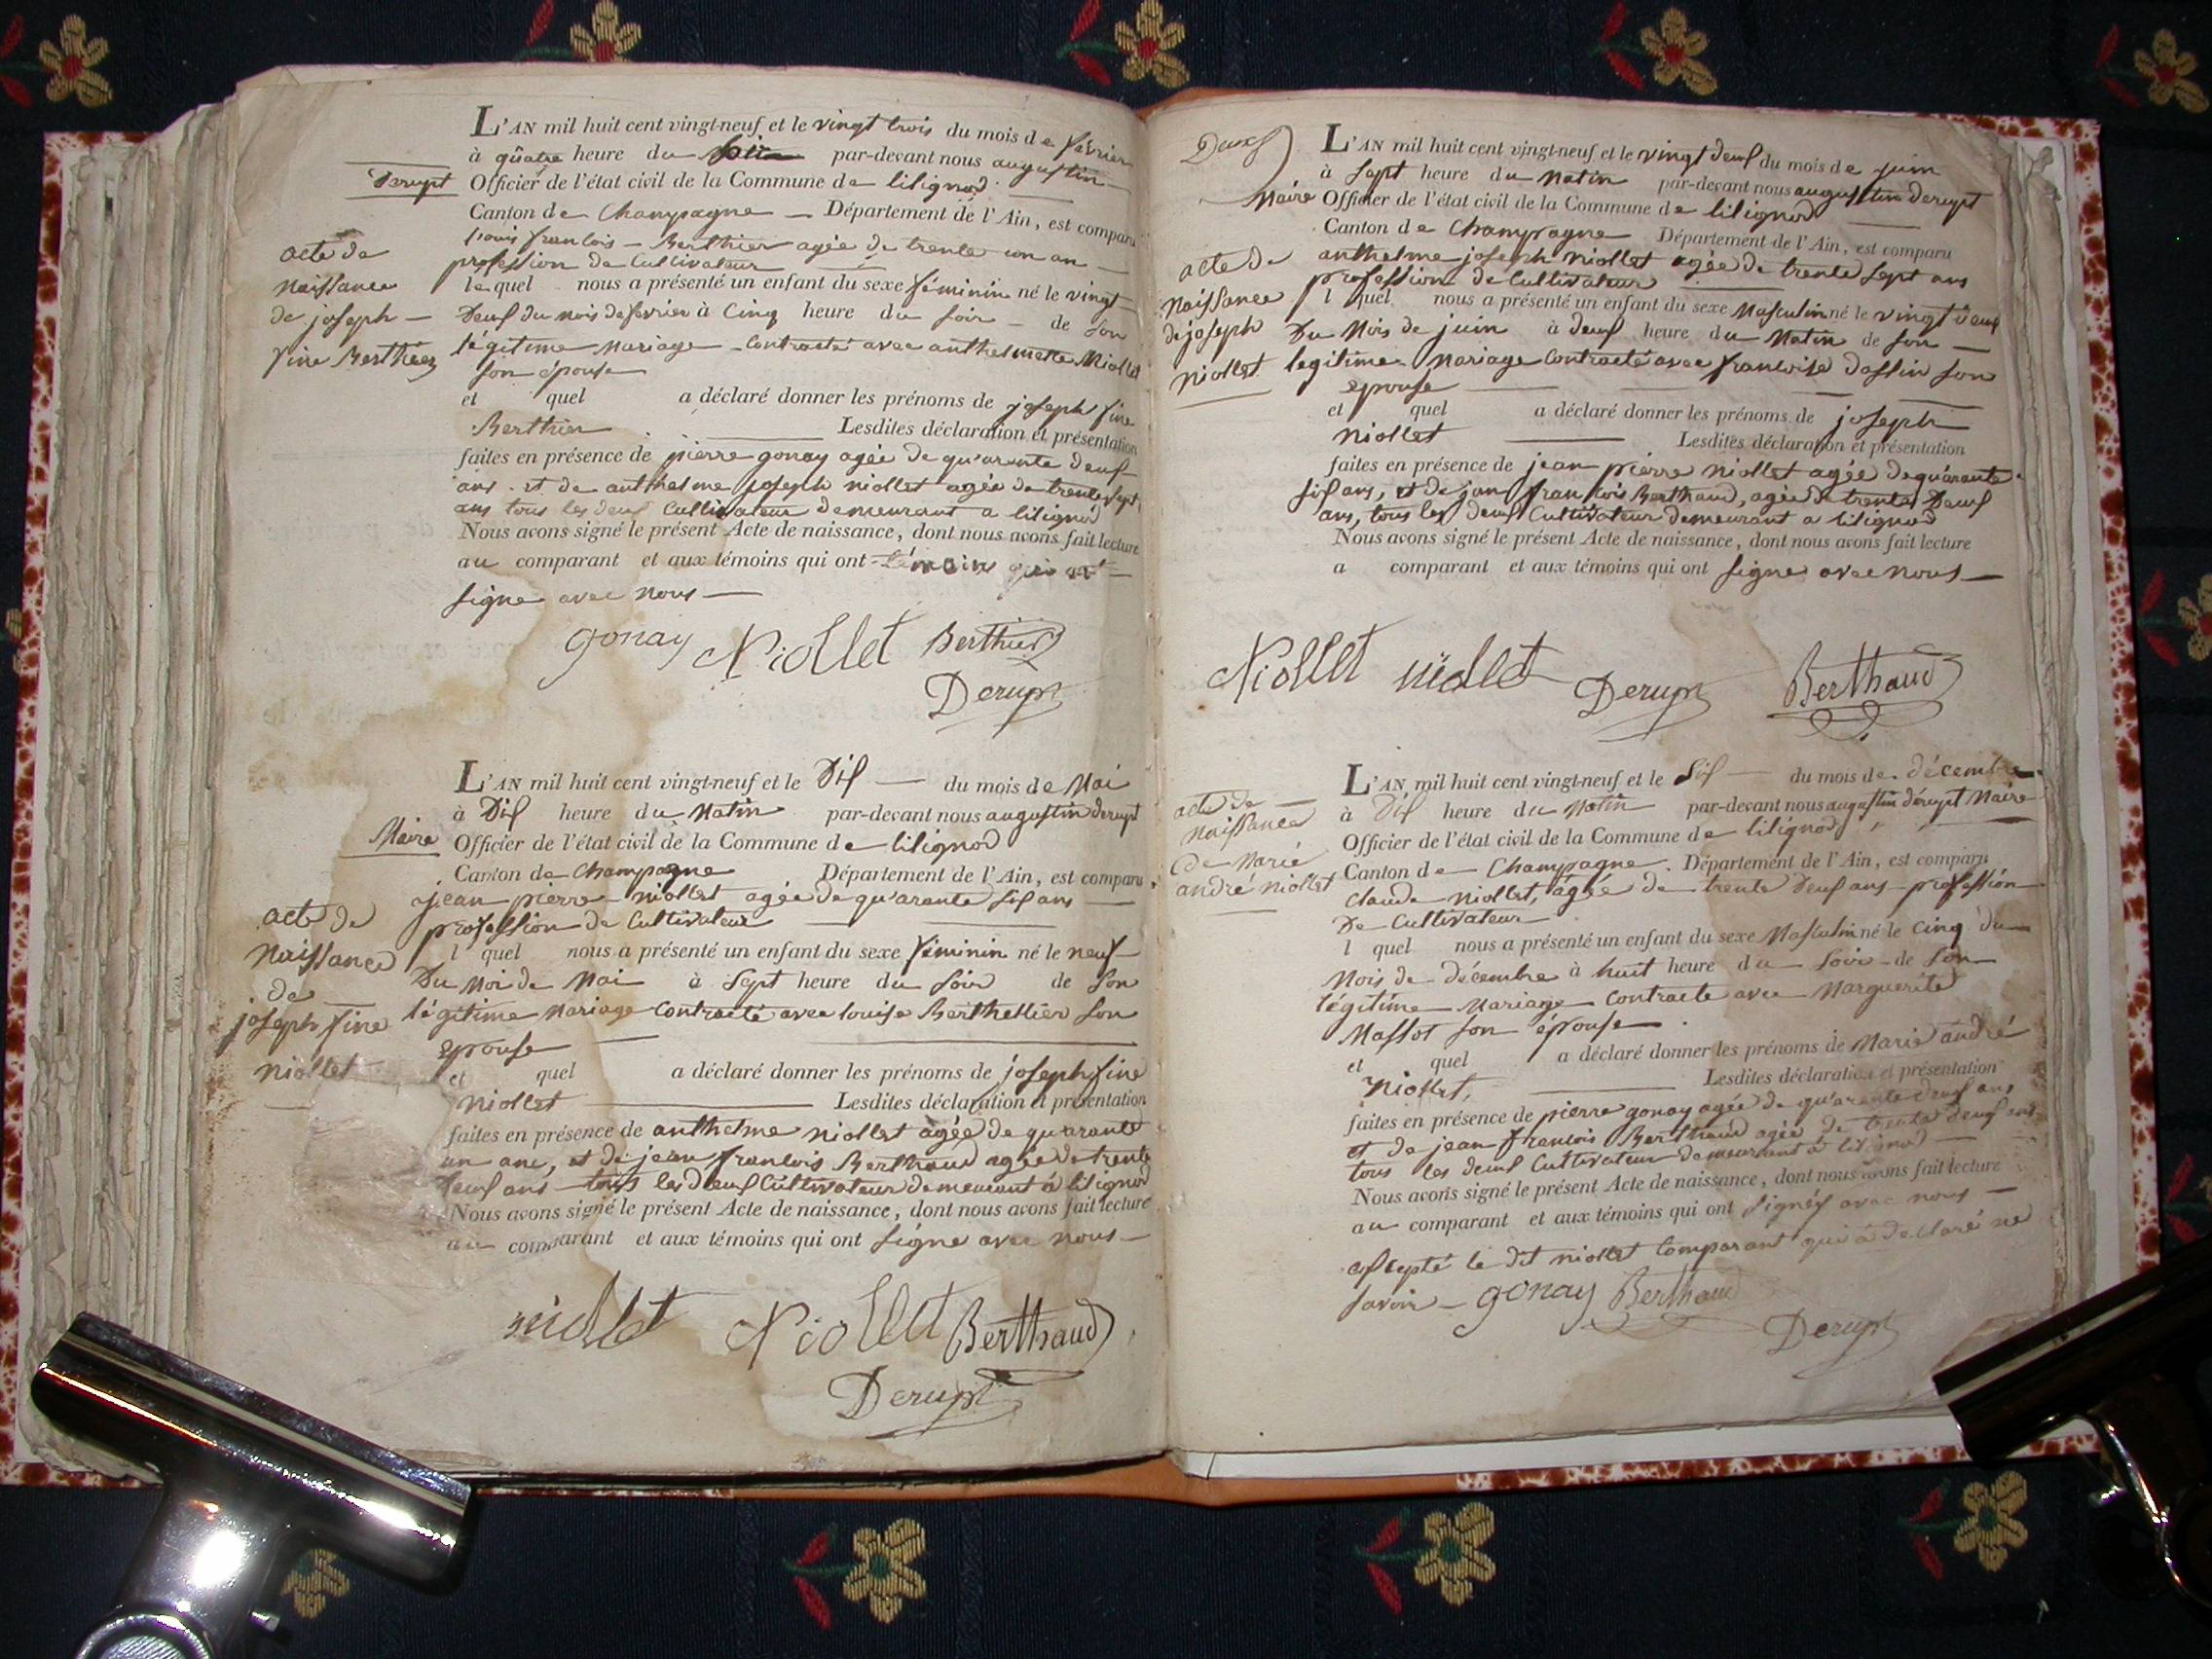 L'AN mil huit cent vingt-neuf et le vingt trois du mois de février
à quatre heure du soir par-devant nous augustin
Derupt Officier de l'état civil de la Commune de lilignod
Canton de Champagne Département de l'Ain, est comparu
louis francois Berthier agée de trente un an
profession de Cultivateur
acte de naissance de joseph fine Berthier
lequel nous a présenté un enfant du sexe féminin né le vingt
Deuf du mois de fevrier à Cinq heure du soir de son
légitime Mariage Contracté avec anthelmette Niollet
son épouse
et quel a déclaré donner les prénoms de joseph fine
Berthier Lesdites déclaration et présentation
faites en présence de pierre gonay agée de qu'arante deuf
ans et de anthelme joseph niollet agée de trente sept
ans tous les deuf Cultivateur demeurant a lilignod
Nous avons signé le présent Acte de naissance, dont nous avons fait lecture
au comparant et aux témoins qui ont témoins qui ont
signe avec nous
gonay Niollet Berthier
Derupt
L'AN mil huit cent vingt-neuf et le Dif du mois de Mai
à Dif heure du Matin par-devant nous augustin derupt
Maire Officier de l'état civil de la Commune de lilignod
Canton de Champagne Département de l'Ain, est comparu
jean pierre niollet agée de qu'arante sif ans
profession de Cultivateur
acte de Naissance de joseph fine niollet
l quel nous a présenté un enfant du sexe féminin né le neuf
Du Moi de Mai à Sept heure du soir de son
légitime Mariage Contracté avec louise Berthellier son
epouse
et quel a déclaré donner les prénoms de joseph fine
Niollet Lesdites déclaration et présentation
faites en présence de anthelme niollet agée de quarante
un anc, et de jean francois Berthaud agée de trente
deuf ans tous les deuf Cultivateur demeurant à lilignod
Nous avons signé le présent Acte de naissance, dont nous avons fait lecture
au comparant et aux témoins qui ont signe avec nous
niollet Niollet Berthaud
Derupt
Deuf
L'AN mil huit cent vingt-neuf et le vingt deuf du mois de juin
à Sept heure du Matin par-devant nous augustin derupt
Maire Officier de l'état civil de la Commune de lilignod
Canton de Champagne Département de l'Ain, est comparu
anthelme joseph Niollet agée de trente sept ans
profession de Cultivateur
acte de Naissance de joseph Niollet
l quel nous a présenté un enfant du sexe Masculin né le vingt deuf
Du Mois de juin à deuf heure du Matin de son
legitime Mariage Contracté avec francoise dassin son
epouse
et quel a déclaré donner les prénoms de joseph
Niollet Lesdites déclaration et présentation
faites en présence de jean pierre niollet agée de quarante
sif ans, et de jan francois Berthaud, agée de trente Deuf
ans, tous les deuf Cultivateur demeurant a lilignod
Nous avons signé le présent Acte de naissance, dont nous avons fait lecture
a comparant et aux témoins qui ont signe avec nous
Niollet niollet Derupt Berthaud
L'AN mil huit cent vingt-neuf et le Sif du mois de décembre
à Dif heure du Matin par-devant nous augustin dérupt Maire
Officier de l'état civil de la Commune de lilignod
Canton de Champagne. Département de l'Ain, est comparu
acte de naissance de Marie andré niollet
Claude Niollet, agée de trente Deuf ans profession
De Cultivateur
l quel nous a présenté un enfant du sexe Masculin né le Cinq du
Mois de décembre à huit heure du soir de son
légitime Mariage Contracte avec Marguerite
Massot son épouse
et quel a déclaré donner les prénoms de Marie andré
Niollet, Lesdites déclaration et présentation
faites en présence de pierre gonay agée de qu'arante deuf ans
et de jean francois Berthaud agée de trente deuf ans
tous les deuf Cultivateur demeurant à lilignod
Nous avons signé le présent Acte de naissance, dont nous avons fait lecture
au comparant et aux témoins qui ont signés avec nous
efcepté le dit niollet Comparant qui à declaré ne
savoir gonay Berthaud
Derupt